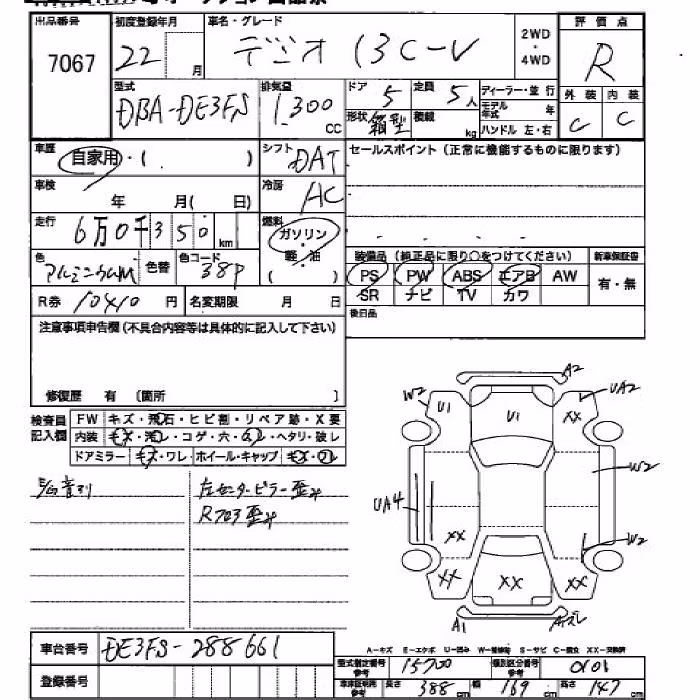 出品番号 7067
初度登録年月 22 月
車名・グレード デミオ 13C-V
2WD・4WD
評価点 R
型式 DBA-DE3FS
排気量 1,300 CC
ドア 5
定員 5人
形状 箱型
積載 kg
ディーラー・並行
モデル年式 年
ハンドル 左・右
外装 C
内装 C
車歴 自家用・( )
シフト DAT
セールスポイント(正常に機能するものに限ります)
車検 年 月( 日)
冷房 AC
走行 6万0千350km
燃料 ガソリン・軽油 ( )
色 アルミニウムM 色替 色コード 38P
装備品(純正品に限り○をつけてください)
新車保証書 有・無
PS PW ABS エアB AW
SR ナビ TV カワ
R券 10410 円 名変期限 月 日
後日品
注意事項申告欄(不具合内容等は具体的に記入して下さい)
修復歴 有 〔箇所 〕
検査員記入欄
FW キズ・飛石・ヒビ割・リペア跡・X要
内装 キズ・汚レ・コゲ・穴・スレ・ヘタリ・破レ
ドアミラー キズ・ワレ・ホイール・キャップ キズ・ワレ
左センターピラー歪み
A2
W2 U1 U1 XX UA2
UA4 W2
XX W2
XX XX XX
A1
車台番号 DE3FS-288661
登録番号
A-キズ E-エクボ U-凹み W-補修跡 S-サビ C-腐食 XX-交換済
型式指定番号 参考 15700
類別区分番号 参考 0101
車体証明用 参考 長さ 388 cm 幅 169 cm 高さ 147 cm